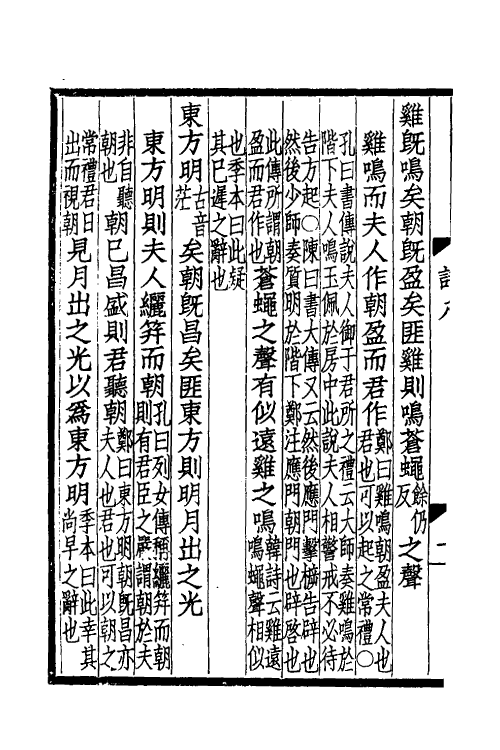 雞既鳴矣朝既盈矣匪雞則鳴蒼蠅餘仍反之聲
雞鳴而夫人作朝盈而君作鄭曰雞鳴朝盈夫人也
君也可以起之常禮〇
孔曰書傳說夫人御于君所之禮云大師奏雞鳴於
階下夫人鳴玉佩於房中此說夫人相警戒不必待
告方起〇陳曰書大傳又云然後應門擊柝告辟也
然後少師奏質明於階下鄭注應門朝門也辟啓也
此傳所謂朝
盈而君作也蒼蠅之聲有似遠雞之鳴韓詩云雞遠
鳴蠅聲相似
也季本曰此疑
其已遲之辭也
東方明古音茫矣朝既昌矣匪東方則明月出之光
東方明則夫人纚笄而朝孔曰列女傳稱纚笄而朝
則有君臣之嚴謂朝於夫
非自聽
朝也朝已昌盛則君聽朝鄭曰東方明朝既昌亦
夫人也君也可以朝之
常禮君日
出而視朝見月出之光以為東方明季本曰此幸其
尚早之辭也
二